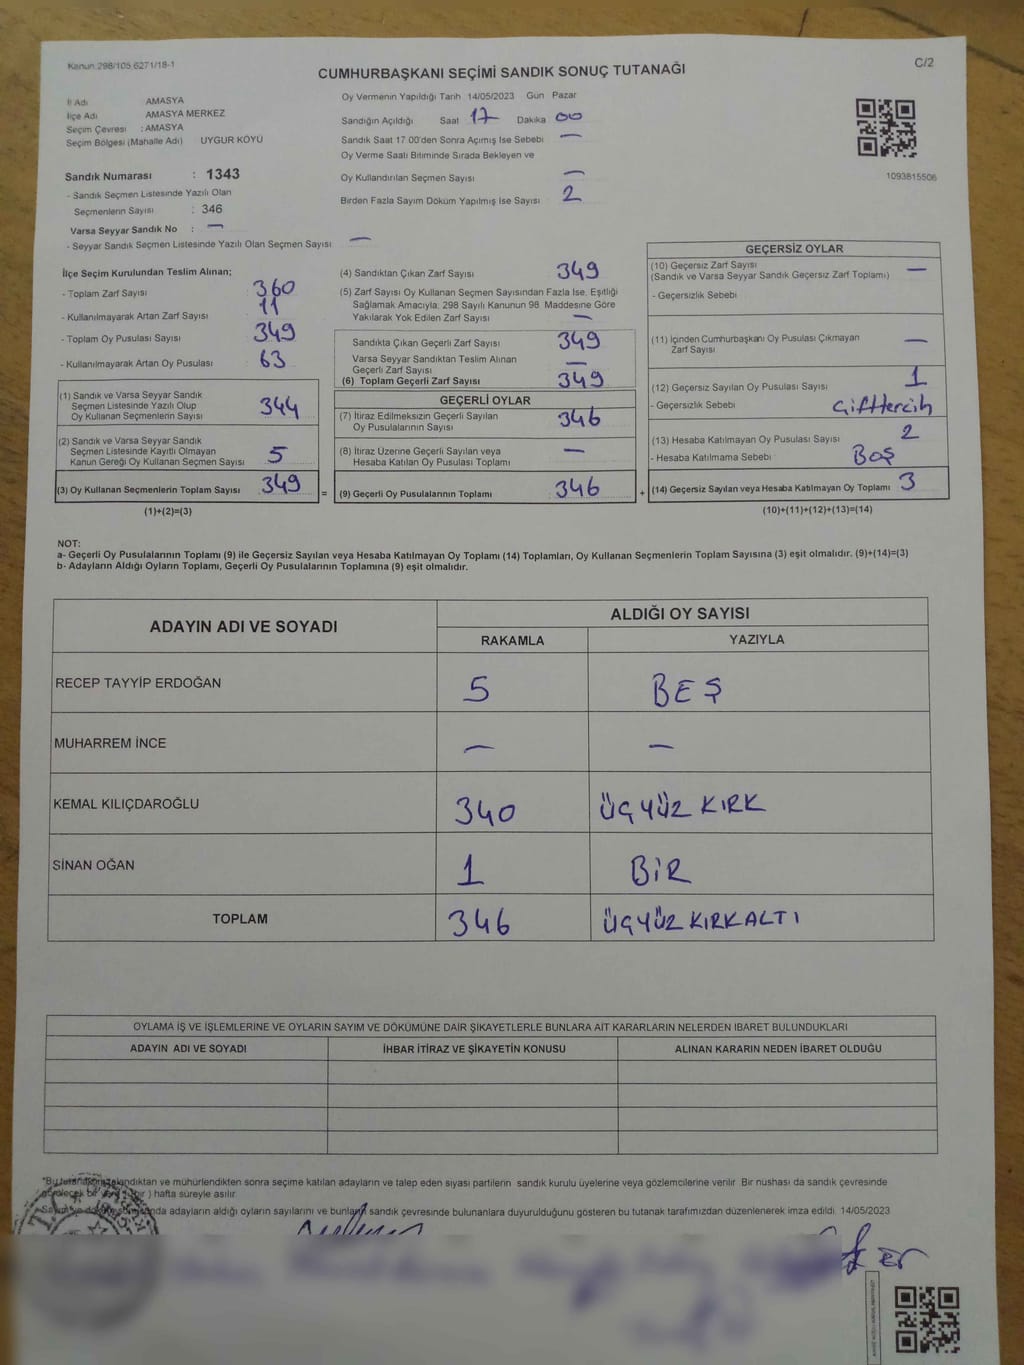 Kanun 298/105 6271/18-1
C/2
CUMHURBAŞKANI SEÇİMİ SANDIK SONUÇ TUTANAĞI
İl Adı AMASYA
İlçe Adı AMASYA MERKEZ
Seçim Çevresi : AMASYA
Seçim Bölgesi (Mahalle Adı) UYGUR KÖYÜ
Sandık Numarası : 1343
- Sandık Seçmen Listesinde Yazılı Olan
Seçmenlerin Sayısı : 346
Varsa Seyyar Sandık No : —
- Seyyar Sandık Seçmen Listesinde Yazılı Olan Seçmen Sayısı —
Oy Vermenin Yapıldığı Tarih 14/05/2023 Gün Pazar
Sandığın Açıldığı Saat 17 Dakika 00
Sandık Saat 17 00'den Sonra Açımış İse Sebebi —
Oy Verme Saati Bitiminde Sırada Bekleyen ve
Oy Kullandırılan Seçmen Sayısı —
Birden Fazla Sayım Döküm Yapılmış İse Sayısı 2
1093815506
İlçe Seçim Kurulundan Teslim Alınan;
- Toplam Zarf Sayısı 360
- Kullanılmayarak Artan Zarf Sayısı 11
- Toplam Oy Pusulası Sayısı 349
- Kullanılmayarak Artan Oy Pusulası 63
(1) Sandık ve Varsa Seyyar Sandık
Seçmen Listesinde Yazılı Olup
Oy Kullanan Seçmenlerin Sayısı 344
(2) Sandık ve Varsa Seyyar Sandık
Seçmen Listesinde Kayıtlı Olmayan
Kanun Gereği Oy Kullanan Seçmen Sayısı 5
(3) Oy Kullanan Seçmenlerin Toplam Sayısı 349 =
(1)+(2)=(3)
(4) Sandıktan Çıkan Zarf Sayısı 349
(5) Zarf Sayısı Oy Kullanan Seçmen Sayısından Fazla İse, Eşitliği
Sağlamak Amacıyla, 298 Sayılı Kanunun 98. Maddesine Göre
Yakılarak Yok Edilen Zarf Sayısı —
Sandıkta Çıkan Geçerli Zarf Sayısı 349
Varsa Seyyar Sandıktan Teslim Alınan
Geçerli Zarf Sayısı —
(6) Toplam Geçerli Zarf Sayısı 349
GEÇERLİ OYLAR
(7) İtiraz Edilmeksizin Geçerli Sayılan
Oy Pusulalarının Sayısı 346
(8) İtiraz Üzerine Geçerli Sayılan veya
Hesaba Katılan Oy Pusulası Toplamı —
(9) Geçerli Oy Pusulalarının Toplamı 346 +
GEÇERSİZ OYLAR
(10) Geçersiz Zarf Sayısı —
(Sandık ve Varsa Seyyar Sandık Geçersiz Zarf Toplamı)
- Geçersizlik Sebebi
(11) İçinden Cumhurbaşkanı Oy Pusulası Çıkmayan
Zarf Sayısı —
(12) Geçersiz Sayılan Oy Pusulası Sayısı 1
- Geçersizlik Sebebi Çift tercih
(13) Hesaba Katılmayan Oy Pusulası Sayısı 2
- Hesaba Katılmama Sebebi BOŞ
(14) Geçersiz Sayılan veya Hesaba Katılmayan Oy Toplamı 3
(10)+(11)+(12)+(13)=(14)
NOT:
a- Geçerli Oy Pusulalarının Toplamı (9) ile Geçersiz Sayılan veya Hesaba Katılmayan Oy Toplamı (14) Toplamları, Oy Kullanan Seçmenlerin Toplam Sayısına (3) eşit olmalıdır. (9)+(14)=(3)
b- Adayların Aldığı Oyların Toplamı, Geçerli Oy Pusulalarının Toplamına (9) eşit olmalıdır.
ADAYIN ADI VE SOYADI
ALDIĞI OY SAYISI
RAKAMLA YAZIYLA
RECEP TAYYİP ERDOĞAN 5 BEŞ
MUHARREM İNCE — —
KEMAL KILIÇDAROĞLU 340 ÜÇYÜZ KIRK
SİNAN OĞAN 1 BİR
TOPLAM 346 ÜÇYÜZ KIRKALTI
OYLAMA İŞ VE İŞLEMLERİNE VE OYLARIN SAYIM VE DÖKÜMÜNE DAİR ŞİKAYETLERLE BUNLARA AİT KARARLARIN NELERDEN İBARET BULUNDUKLARI
ADAYIN ADI VE SOYADI İHBAR İTİRAZ VE ŞİKAYETİN KONUSU ALINAN KARARIN NEDEN İBARET OLDUĞU
ve mühürlendikten sonra seçime katılan adayların ve talep eden siyasi partilerin sandık kurulu üyelerine veya gözlemcilerine verilir Bir nushası da sandık çevresinde
hafta süreyle asılır.
adayların aldığı oyların sayılarını ve bunların sandık çevresinde bulunanlara duyurulduğunu gösteren bu tutanak tarafımızdan düzenlenerek imza edildi. 14/05/2023